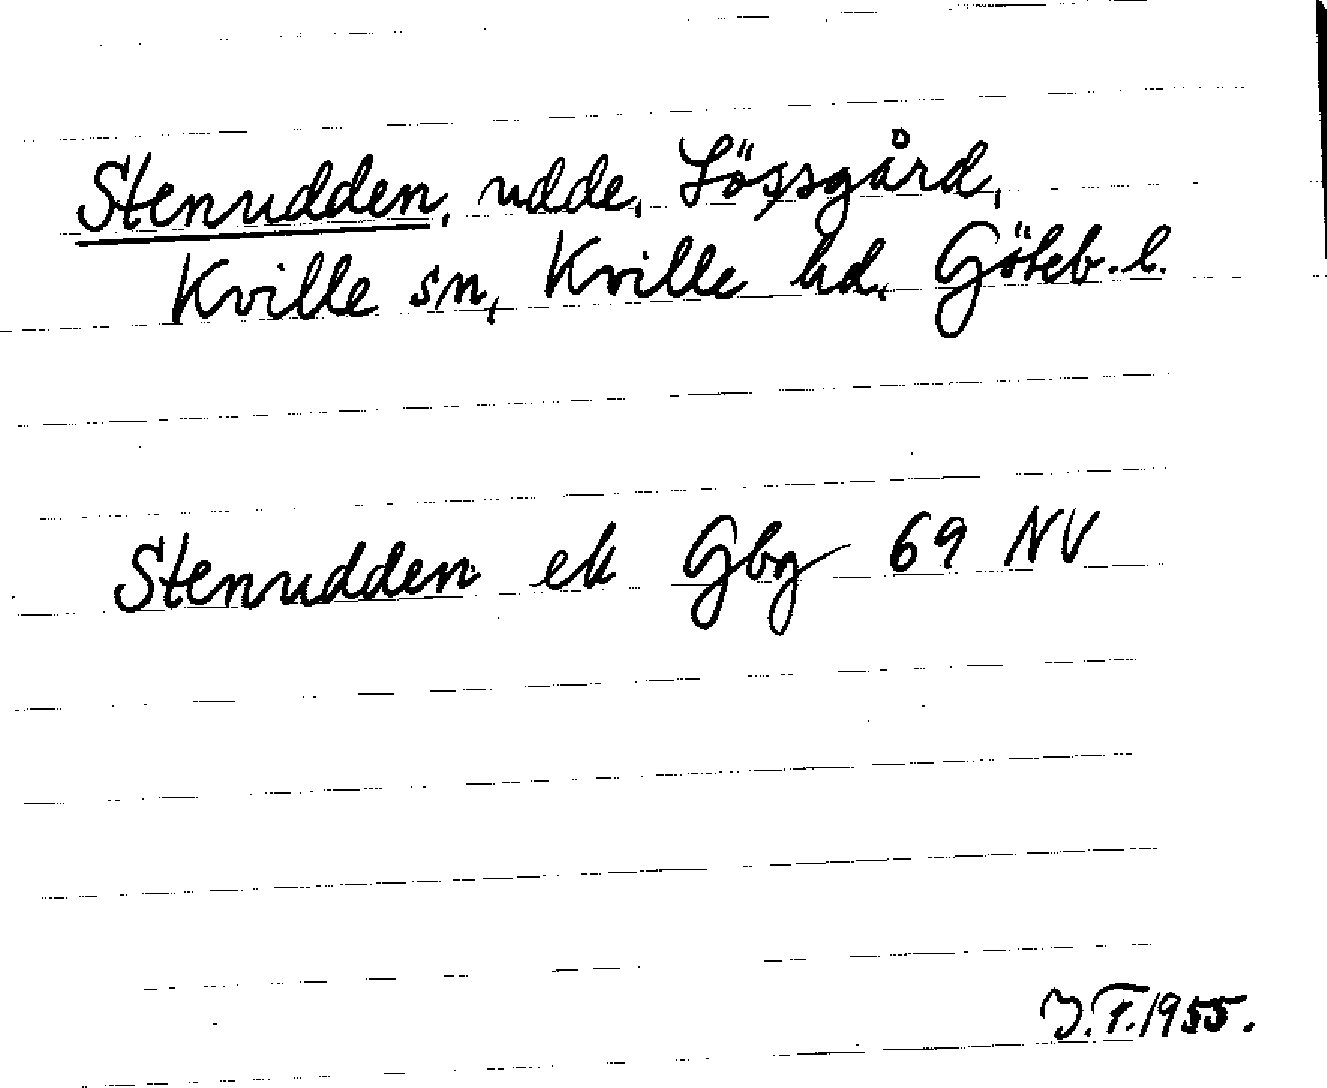 Stenudden, udde, Lössgård,
Kville sn, Kville hd, Göteb. l.
Stenudden ek Gbg 69 NV
J.F. 1955.